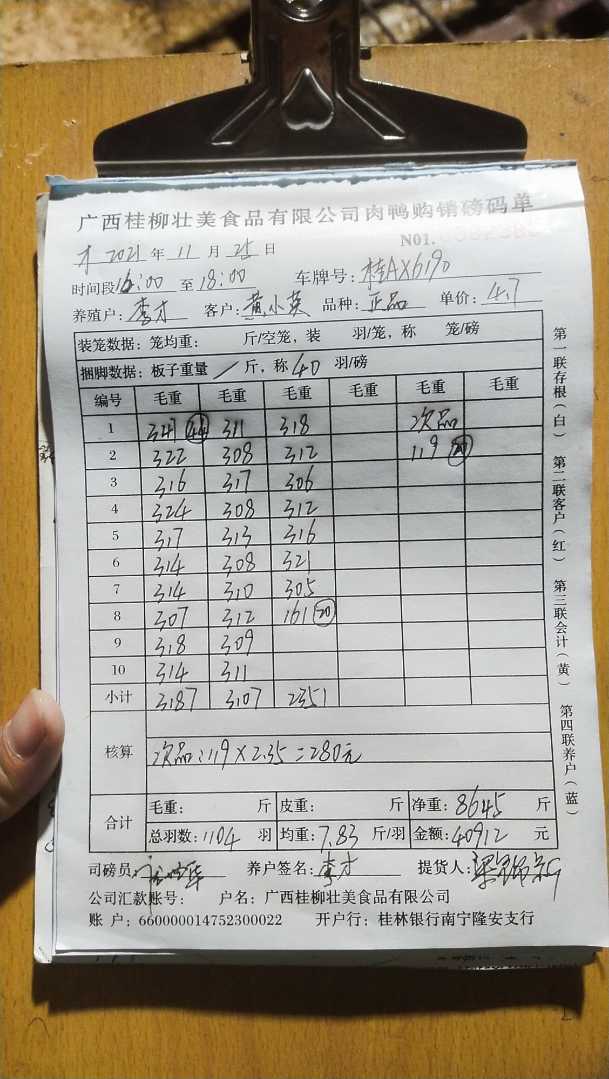 广西桂柳壮美食品有限公司肉鸭购销磅码单
才 2021 年 11 月 25 日 N01.
时间段 16:00 至 18:00 车牌号: 桂AX6190
养殖户: 李才 客户: 黄小英 品种: 正品 单价: 4.7
装笼数据: 笼均重: 斤/空笼, 装 羽/笼, 称 笼/磅
捆脚数据: 板子重量 / 斤, 称 40 羽/磅
编号 毛重 毛重 毛重 毛重 毛重 毛重
1 341 44 311 318 次品
2 322 308 312 119 20
3 316 317 306
4 324 308 312
5 317 313 316
6 314 308 321
7 314 310 305
8 307 312 161 20
9 318 309
10 314 311
小计 3187 3107 2351
核算 次品:119×2.35=280元
合计 毛重: 斤 皮重: 斤 净重: 8645 斤
总羽数: 1104 羽 均重: 7.83 斤/羽 金额: 40912 元
司磅员: 养户签名: 李才 提货人:
公司汇款账号: 户名: 广西桂柳壮美食品有限公司
账 户: 660000014752300022 开户行: 桂林银行南宁隆安支行
第一联存根(白) 第二联客户(红) 第三联会计(黄) 第四联养户(蓝)